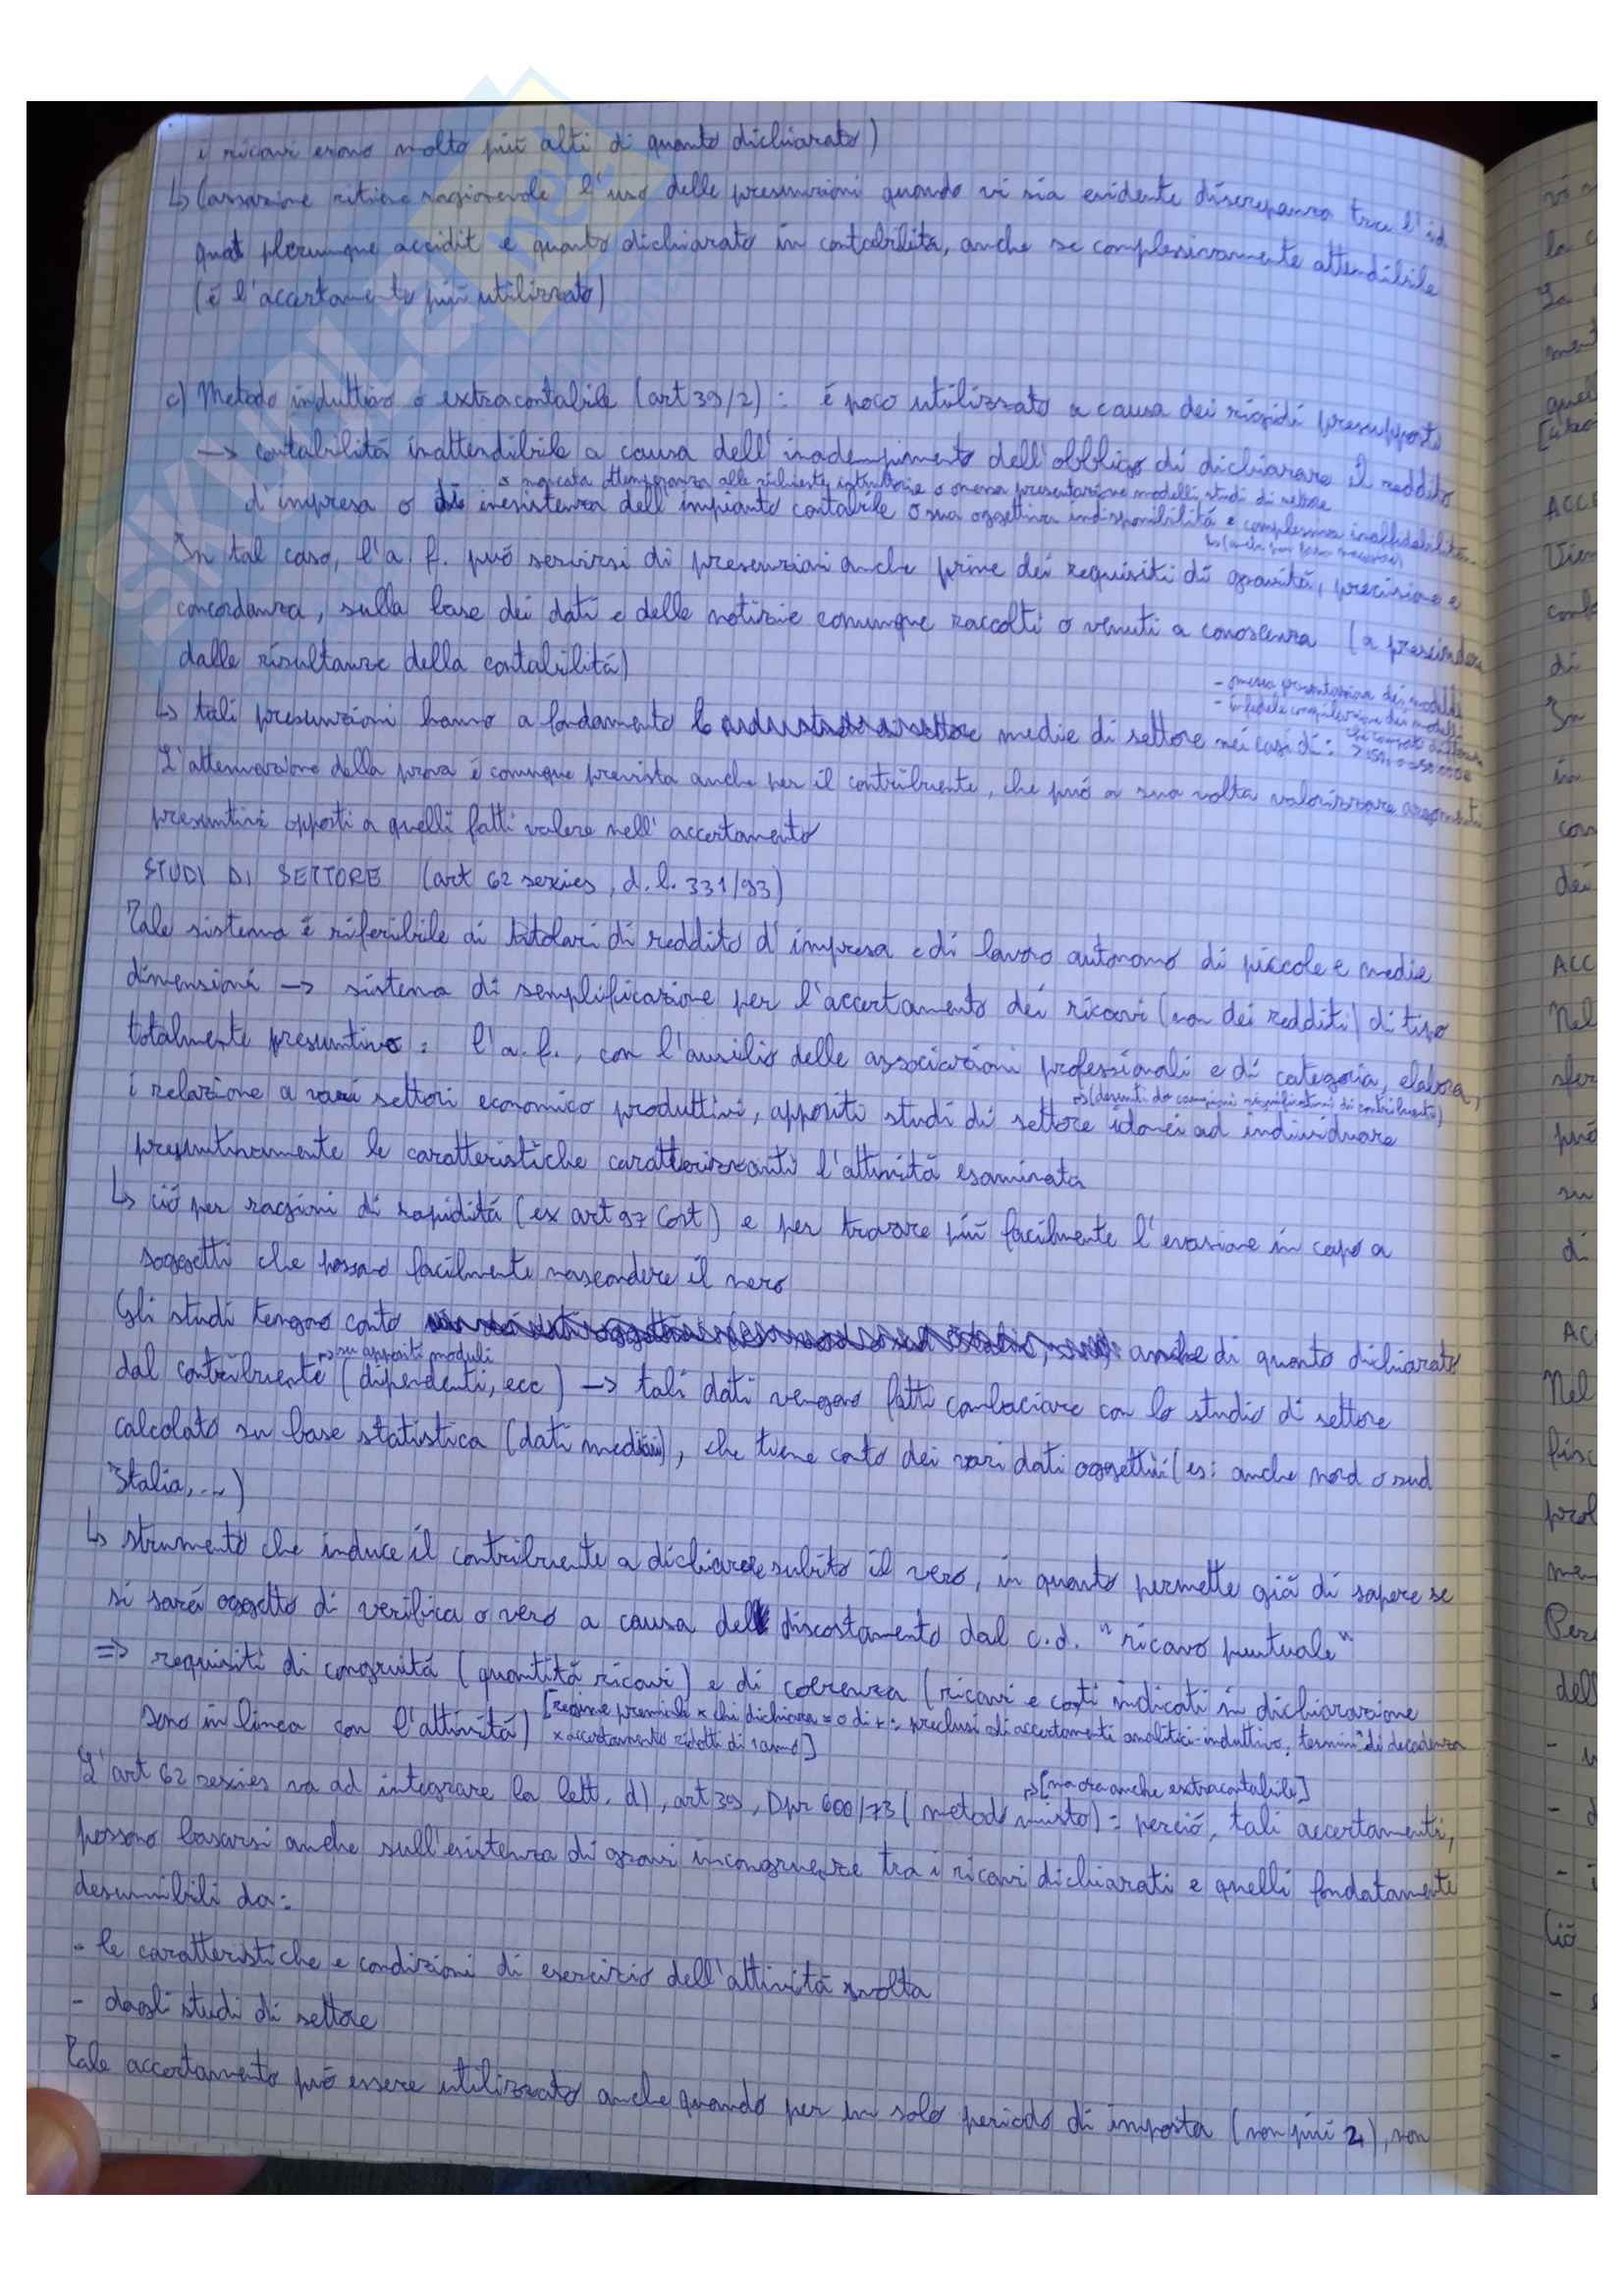 i ricavi erano molto più alti di quanto dichiarato)
↳ Cassazione ritiene ragionevole l'uso delle presunzioni quando vi sia evidente discrepanza tra l'id
quot plerumque accidit e quanto dichiarato in contabilità, anche se complessivamente attendibile
(è l'accertamento più utilizzato)
c) Metodo induttivo o extracontabile (art 39/2): è poco utilizzato a causa dei rigidi presupposti
→ contabilità inattendibile a causa dell'inadempimento dell'obbligo di dichiarare il reddito
o mancata ottemperanza alle richieste istruttorie o omessa presentazione modelli studi di settore
d'impresa o di inesistenza dell'impianto contabile o sua oggettiva indisponibilità e complessiva inaffidabilità
In tal caso, l'a. f. può servirsi di presunzioni anche prive dei requisiti di gravità, precisione e
concordanza, sulla base dei dati e delle notizie comunque raccolti o venuti a conoscenza (a prescindere
dalle risultanze della contabilità)
- omessa presentazione dei modelli
- infedele compilazione dei modelli
↳ tali presunzioni hanno a fondamento le medie di settore nei casi di:
L'attenuazione della prova è comunque prevista anche per il contribuente, che può a sua volta valorizzare argomenti
presuntivi opposti a quelli fatti valere nell'accertamento
STUDI DI SETTORE (art 62 sexies, d.l. 331/93)
Tale sistema è riferibile ai titolari di reddito d'impresa e di lavoro autonomo di piccole e medie
dimensioni → sistema di semplificazione per l'accertamento dei ricavi (non dei redditi) di tipo
totalmente presuntivo: l'a.f., con l'ausilio delle associazioni professionali e di categoria, elabora,
i relazione a vari settori economico produttivi, appositi studi di settore idonei ad individuare
↱(desunti da campioni significativi di contribuenti)
presuntivamente le caratteristiche caratterizzanti l'attività esaminata
↳ ciò per ragioni di rapidità (ex art 97 Cost) e per trovare più facilmente l'evasione in capo a
soggetti che possano facilmente nascondere il nero
Gli studi tengono conto anche di quanto dichiarato
↱su appositi moduli
dal contribuente (dipendenti, ecc) → tali dati vengono fatti combaciare con lo studio di settore
calcolato su base statistica (dati medi), che tiene conto dei vari dati oggettivi (es: anche nord o sud
Italia,...)
↳ strumento che induce il contribuente a dichiarare subito il vero, in quanto permette già di sapere se
si sarà oggetto di verifica o vero a causa del discostamento dal c.d. "ricavo puntuale"
⇒ requisiti di congruità (quantità ricavi) e di coerenza (ricavi e costi indicati in dichiarazione
sono in linea con l'attività) [regime premiale x chi dichiara = o di +: preclusi gli accertamenti analitici-induttivo, termini di decadenza
x accertamento ridotti di 1 anno]
L'art 62 sexies va ad integrare la lett. d), art 39, Dpr 600/73 (metodo misto): perciò, tali accertamenti,
↱[ma ora anche extracontabile]
possono basarsi anche sull'esistenza di gravi incongruenze tra i ricavi dichiarati e quelli fondatamente
desumibili da:
- le caratteristiche e condizioni di esercizio dell'attività svolta
- dagli studi di settore
Tale accertamento può essere utilizzato anche quando per un solo periodo di imposta (non più 2), non